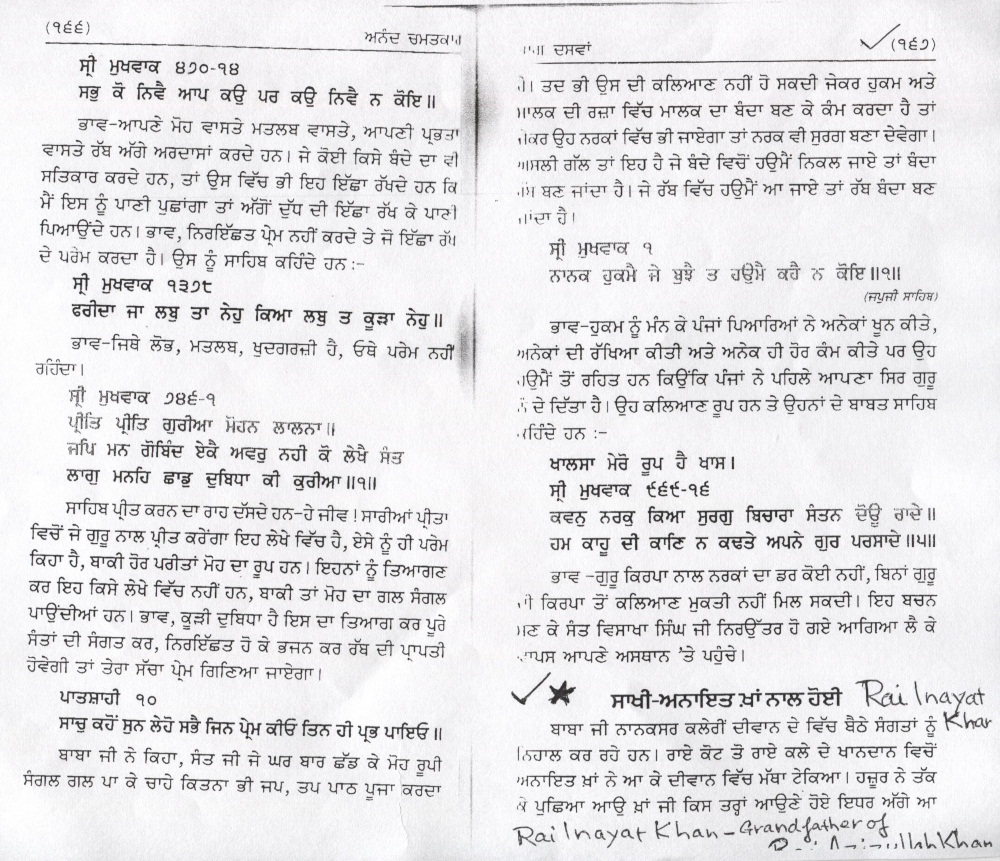 (੧੬੬)
ਅਨੰਦ ਚਮਤਕਾਰ
ਸ੍ਰੀ ਮੁਖਵਾਕ ੪੭੦-੧੪
ਸਭੁ ਕੋ ਨਿਵੈ ਆਪ ਕਉ ਪਰ ਕਉ ਨਿਵੈ ਨ ਕੋਇ॥
ਭਾਵ-ਆਪਣੇ ਮੋਹ ਵਾਸਤੇ ਮਤਲਬ ਵਾਸਤੇ, ਆਪਣੀ ਪ੍ਰਭਤਾ
ਵਾਸਤੇ ਰੱਬ ਅੱਗੇ ਅਰਦਾਸਾਂ ਕਰਦੇ ਹਨ। ਜੇ ਕੋਈ ਕਿਸੇ ਬੰਦੇ ਦਾ ਵੀ
ਸਤਿਕਾਰ ਕਰਦੇ ਹਨ, ਤਾਂ ਉਸ ਵਿੱਚ ਭੀ ਇਹ ਇੱਛਾ ਰੱਖਦੇ ਹਨ ਕਿ
ਮੈਂ ਇਸ ਨੂੰ ਪਾਣੀ ਪੁਛਾਂਗਾ ਤਾਂ ਅੱਗੋਂ ਦੁੱਧ ਦੀ ਇੱਛਾ ਰੱਖ ਕੇ ਪਾਣੀ
ਪਿਆਉਂਦੇ ਹਨ। ਭਾਵ, ਨਿਰਇੱਛਤ ਪ੍ਰੇਮ ਨਹੀਂ ਕਰਦੇ ਤੇ ਜੋ ਇੱਛਾ ਰੱਖ
ਦੇ ਪਰੇਮ ਕਰਦਾ ਹੈ। ਉਸ ਨੂੰ ਸਾਹਿਬ ਕਹਿੰਦੇ ਹਨ:-
ਸ੍ਰੀ ਮੁਖਵਾਕ ੧੩੭੮
ਫਰੀਦਾ ਜਾ ਲਬੁ ਤਾ ਨੇਹੁ ਕਿਆ ਲਬੁ ਤ ਕੂੜਾ ਨੇਹੁ॥
ਭਾਵ-ਜਿਥੇ ਲੋਭ, ਮਤਲਬ, ਖੁਦਗਰਜ਼ੀ ਹੈ, ਓਥੇ ਪਰੇਮ ਨਹੀਂ
ਰਹਿੰਦਾ।
ਸ੍ਰੀ ਮੁਖਵਾਕ ੭੪੬-੧
ਪ੍ਰੀਤਿ ਪ੍ਰੀਤਿ ਗੁਰੀਆ ਮੋਹਨ ਲਾਲਨਾ॥
ਜਪਿ ਮਨ ਗੋਬਿੰਦ ਏਕੈ ਅਵਰੁ ਨਹੀ ਕੋ ਲੇਖੈ ਸੰਤ
ਲਾਗੁ ਮਨਹਿ ਛਾਡੁ ਦੁਬਿਧਾ ਕੀ ਕੁਰੀਆ॥੧॥
ਸਾਹਿਬ ਪ੍ਰੀਤ ਕਰਨ ਦਾ ਰਾਹ ਦੱਸਦੇ ਹਨ-ਹੇ ਜੀਵ! ਸਾਰੀਆਂ ਪ੍ਰੀਤਾ
ਵਿਚੋਂ ਜੇ ਗੁਰੂ ਨਾਲ ਪ੍ਰੀਤ ਕਰੇਂਗਾ ਇਹ ਲੇਖੇ ਵਿੱਚ ਹੈ, ਏਸੇ ਨੂੰ ਹੀ ਪਰੇਮ
ਕਿਹਾ ਹੈ, ਬਾਕੀ ਹੋਰ ਪਰੀਤਾਂ ਮੋਹ ਦਾ ਰੂਪ ਹਨ। ਇਹਨਾਂ ਨੂੰ ਤਿਆਗਣ
ਕਰ ਇਹ ਕਿਸੇ ਲੇਖੇ ਵਿੱਚ ਨਹੀਂ ਹਨ, ਬਾਕੀ ਤਾਂ ਮੋਹ ਦਾ ਗਲ ਸੰਗਲ
ਪਾਉਂਦੀਆਂ ਹਨ। ਭਾਵ, ਕੂੜੀ ਦੁਬਿਧਾ ਹੈ ਇਸ ਦਾ ਤਿਆਗ ਕਰ ਪੂਰੇ
ਸੰਤਾਂ ਦੀ ਸੰਗਤ ਕਰ, ਨਿਰਇੱਛਤ ਹੋ ਕੇ ਭਜਨ ਕਰ ਰੱਬ ਦੀ ਪ੍ਰਾਪਤੀ
ਹੋਵੇਗੀ ਤਾਂ ਤੇਰਾ ਸੱਚਾ ਪ੍ਰੇਮ ਗਿਣਿਆ ਜਾਏਗਾ।
ਪਾਤਸ਼ਾਹੀ ੧੦
ਸਾਚੁ ਕਹੋਂ ਸੁਨ ਲੇਹੋ ਸਭੈ ਜਿਨ ਪ੍ਰੇਮ ਕੀਓ ਤਿਨ ਹੀ ਪ੍ਰਭ ਪਾਇਓ॥
ਬਾਬਾ ਜੀ ਨੇ ਕਿਹਾ, ਸੰਤ ਜੀ ਜੇ ਘਰ ਬਾਰ ਛੱਡ ਕੇ ਮੋਹ ਰੂਪੀ
ਸੰਗਲ ਗਲ ਪਾ ਕੇ ਚਾਹੇ ਕਿਤਨਾ ਭੀ ਜਪ, ਤਪ ਪਾਠ ਪੂਜਾ ਕਰਦਾ
ਦਸਵਾਂ
(੧੬੭)
ਤਦ ਭੀ ਉਸ ਦੀ ਕਲਿਆਣ ਨਹੀਂ ਹੋ ਸਕਦੀ ਜੇਕਰ ਹੁਕਮ ਅਤੇ
ਮਾਲਕ ਦੀ ਰਜ਼ਾ ਵਿੱਚ ਮਾਲਕ ਦਾ ਬੰਦਾ ਬਣ ਕੇ ਕੰਮ ਕਰਦਾ ਹੈ ਤਾਂ
ਜੇਕਰ ਉਹ ਨਰਕਾਂ ਵਿੱਚ ਭੀ ਜਾਏਗਾ ਤਾਂ ਨਰਕ ਵੀ ਸੁਰਗ ਬਣਾ ਦੇਵੇਗਾ।
ਅਸਲੀ ਗੱਲ ਤਾਂ ਇਹ ਹੈ ਜੇ ਬੰਦੇ ਵਿਚੋਂ ਹਉਮੈਂ ਨਿਕਲ ਜਾਏ ਤਾਂ ਬੰਦਾ
ਬਣ ਜਾਂਦਾ ਹੈ। ਜੇ ਰੱਬ ਵਿੱਚ ਹਉਮੈਂ ਆ ਜਾਏ ਤਾਂ ਰੱਬ ਬੰਦਾ ਬਣ
ਜਾਂਦਾ ਹੈ।
ਸ੍ਰੀ ਮੁਖਵਾਕ ੧
ਨਾਨਕ ਹੁਕਮੈ ਜੇ ਬੁਝੈ ਤ ਹਉਮੈ ਕਹੈ ਨ ਕੋਇ॥੧॥
(ਜਪੁਜੀ ਸਾਹਿਬ)
ਭਾਵ-ਹੁਕਮ ਨੂੰ ਮੰਨ ਕੇ ਪੰਜਾਂ ਪਿਆਰਿਆਂ ਨੇ ਅਨੇਕਾਂ ਖੂਨ ਕੀਤੇ,
ਅਨੇਕਾਂ ਦੀ ਰੱਖਿਆ ਕੀਤੀ ਅਤੇ ਅਨੇਕ ਹੀ ਹੋਰ ਕੰਮ ਕੀਤੇ ਪਰ ਉਹ
ਹਉਮੈਂ ਤੋਂ ਰਹਿਤ ਹਨ ਕਿਉਂਕਿ ਪੰਜਾਂ ਨੇ ਪਹਿਲੇ ਆਪਣਾ ਸਿਰ ਗੁਰੂ
ਨੂੰ ਦੇ ਦਿੱਤਾ ਹੈ। ਉਹ ਕਲਿਆਣ ਰੂਪ ਹਨ ਤੇ ਉਹਨਾਂ ਦੇ ਬਾਬਤ ਸਾਹਿਬ
ਕਹਿੰਦੇ ਹਨ :-
ਖਾਲਸਾ ਮੇਰੋ ਰੂਪ ਹੈ ਖਾਸ।
ਸ੍ਰੀ ਮੁਖਵਾਕ ੯੬੯-੧੬
ਕਵਨੁ ਨਰਕੁ ਕਿਆ ਸੁਰਗੁ ਬਿਚਾਰਾ ਸੰਤਨ ਦੋਊ ਰਾਦੇ॥
ਹਮ ਕਾਹੂ ਦੀ ਕਾਣਿ ਨ ਕਢਤੇ ਅਪਨੇ ਗੁਰ ਪਰਸਾਦੇ॥੫॥
ਭਾਵ -ਗੁਰੂ ਕਿਰਪਾ ਨਾਲ ਨਰਕਾਂ ਦਾ ਡਰ ਕੋਈ ਨਹੀਂ, ਬਿਨਾਂ ਗੁਰੂ
ਦੀ ਕਿਰਪਾ ਤੋਂ ਕਲਿਆਣ ਮੁਕਤੀ ਨਹੀਂ ਮਿਲ ਸਕਦੀ। ਇਹ ਬਚਨ
ਸੁਣ ਕੇ ਸੰਤ ਵਿਸਾਖਾ ਸਿੰਘ ਜੀ ਨਿਰਉੱਤਰ ਹੋ ਗਏ ਆਗਿਆ ਲੈ ਕੇ
ਵਾਪਸ ਆਪਣੇ ਅਸਥਾਨ 'ਤੇ ਪਹੁੰਚੇ।
ਸਾਖੀ-ਅਨਾਇਤ ਖ਼ਾਂ ਨਾਲ ਹੋਈ Rai Inayat
Khan
ਬਾਬਾ ਜੀ ਨਾਨਕਸਰ ਕਲੇਰੀਂ ਦੀਵਾਨ ਦੇ ਵਿੱਚ ਬੈਠੇ ਸੰਗਤਾਂ ਨੂੰ
ਨਿਹਾਲ ਕਰ ਰਹੇ ਹਨ। ਰਾਏ ਕੋਟ ਤੋਂ ਰਾਏ ਕਲੇ ਦੇ ਖਾਨਦਾਨ ਵਿਚੋਂ
ਅਨਾਇਤ ਖ਼ਾਂ ਨੇ ਆ ਕੇ ਦੀਵਾਨ ਵਿੱਚ ਮੱਥਾ ਟੇਕਿਆ। ਹਜ਼ੂਰ ਨੇ ਤੱਕ
ਕੇ ਪੁਛਿਆ ਆਉ ਖ਼ਾਂ ਜੀ ਕਿਸ ਤਰ੍ਹਾਂ ਆਉਣੇ ਹੋਏ ਇਧਰ ਅੱਗੇ ਆ
Rai Inayat Khan - Grandfather of
Rai Azizullah Khan